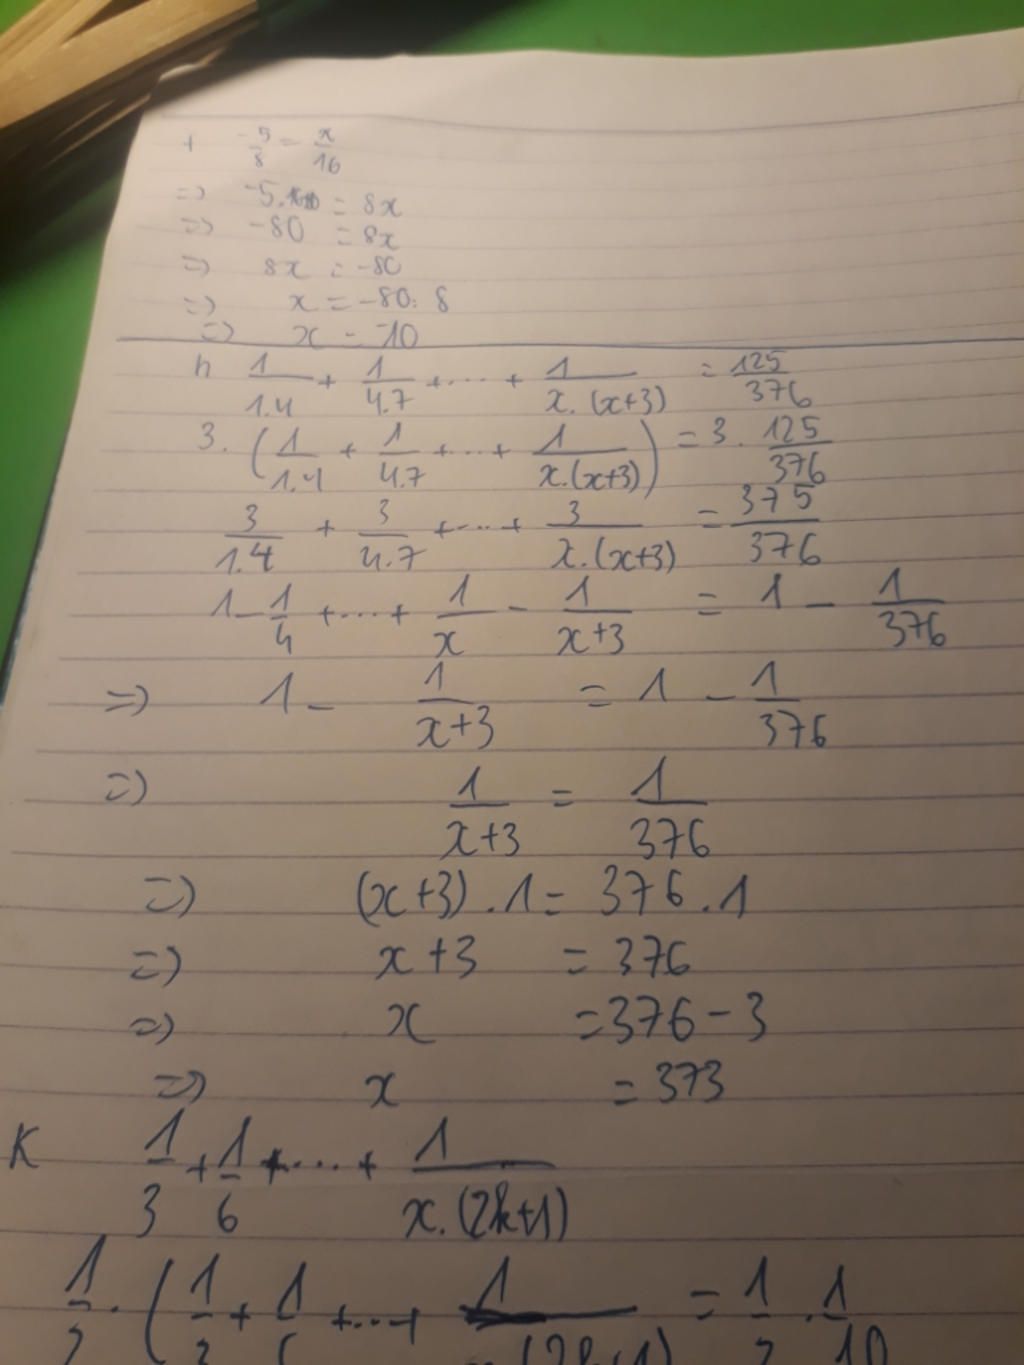 + -5/8 = x/16
=> -5.16 = 8x
=> -80 = 8x
=> 8x = -80
=> x = -80:8
=> x = -10
h 1/1.4 + 1/4.7 + ... + 1/x.(x+3) = 125/376
3.(1/1.4 + 1/4.7 + ... + 1/x.(x+3)) = 3.125/376
3/1.4 + 3/4.7 + ... + 3/x.(x+3) = 375/376
1 - 1/4 + ... + 1/x - 1/x+3 = 1 - 1/376
=> 1 - 1/x+3 = 1 - 1/376
=> 1/x+3 = 1/376
=> (x+3).1 = 376.1
=> x+3 = 376
=> x = 376-3
=> x = 373
K 1/3 + 1/6 + ... + 1/x.(2k+1)
1/2.(1/3 + 1/6 + ... + 1/ (2k+1) = 1/2.1/10